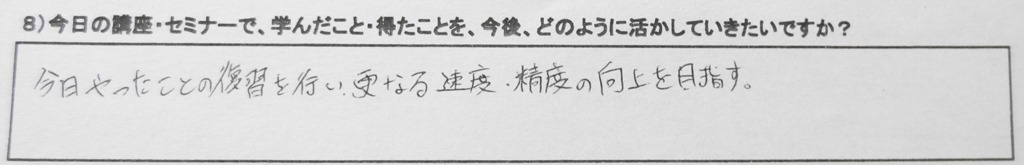 8)今日の講座・セミナーで、学んだこと・得たことを、今後、どのように活かしていきたいですか？
今日やったことの復習を行い、更なる速度・精度の向上を目指す。